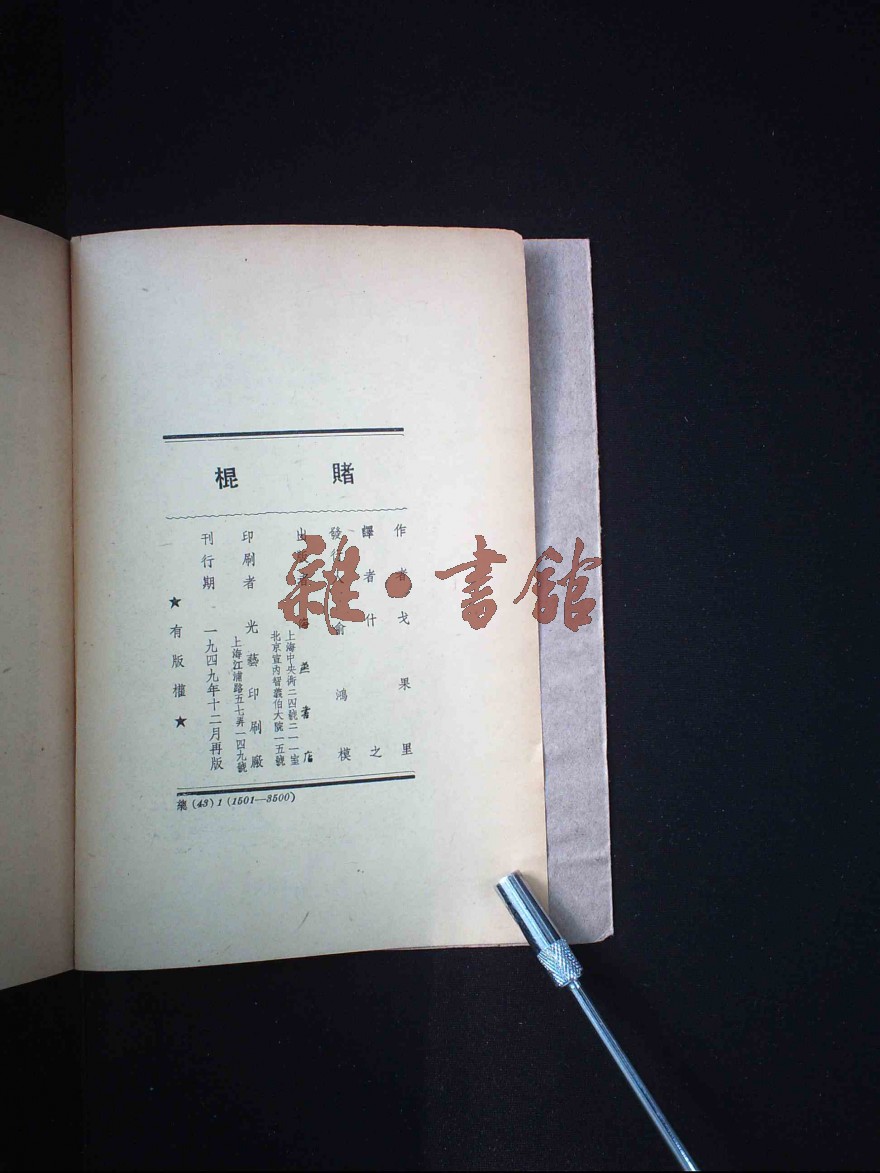 賭棍
作者 戈果里
譯者 什之
發行人 俞鴻模
出版者 海燕書店
上海中央街二四號二一一室
北京宣內智義伯大院一五號
印刷者 光藝印刷廠
上海江浦路五七弄一四九號
刊行期 一九四九年十二月再版
★有版權★
總(43)1(1501—3500)
雜·書館